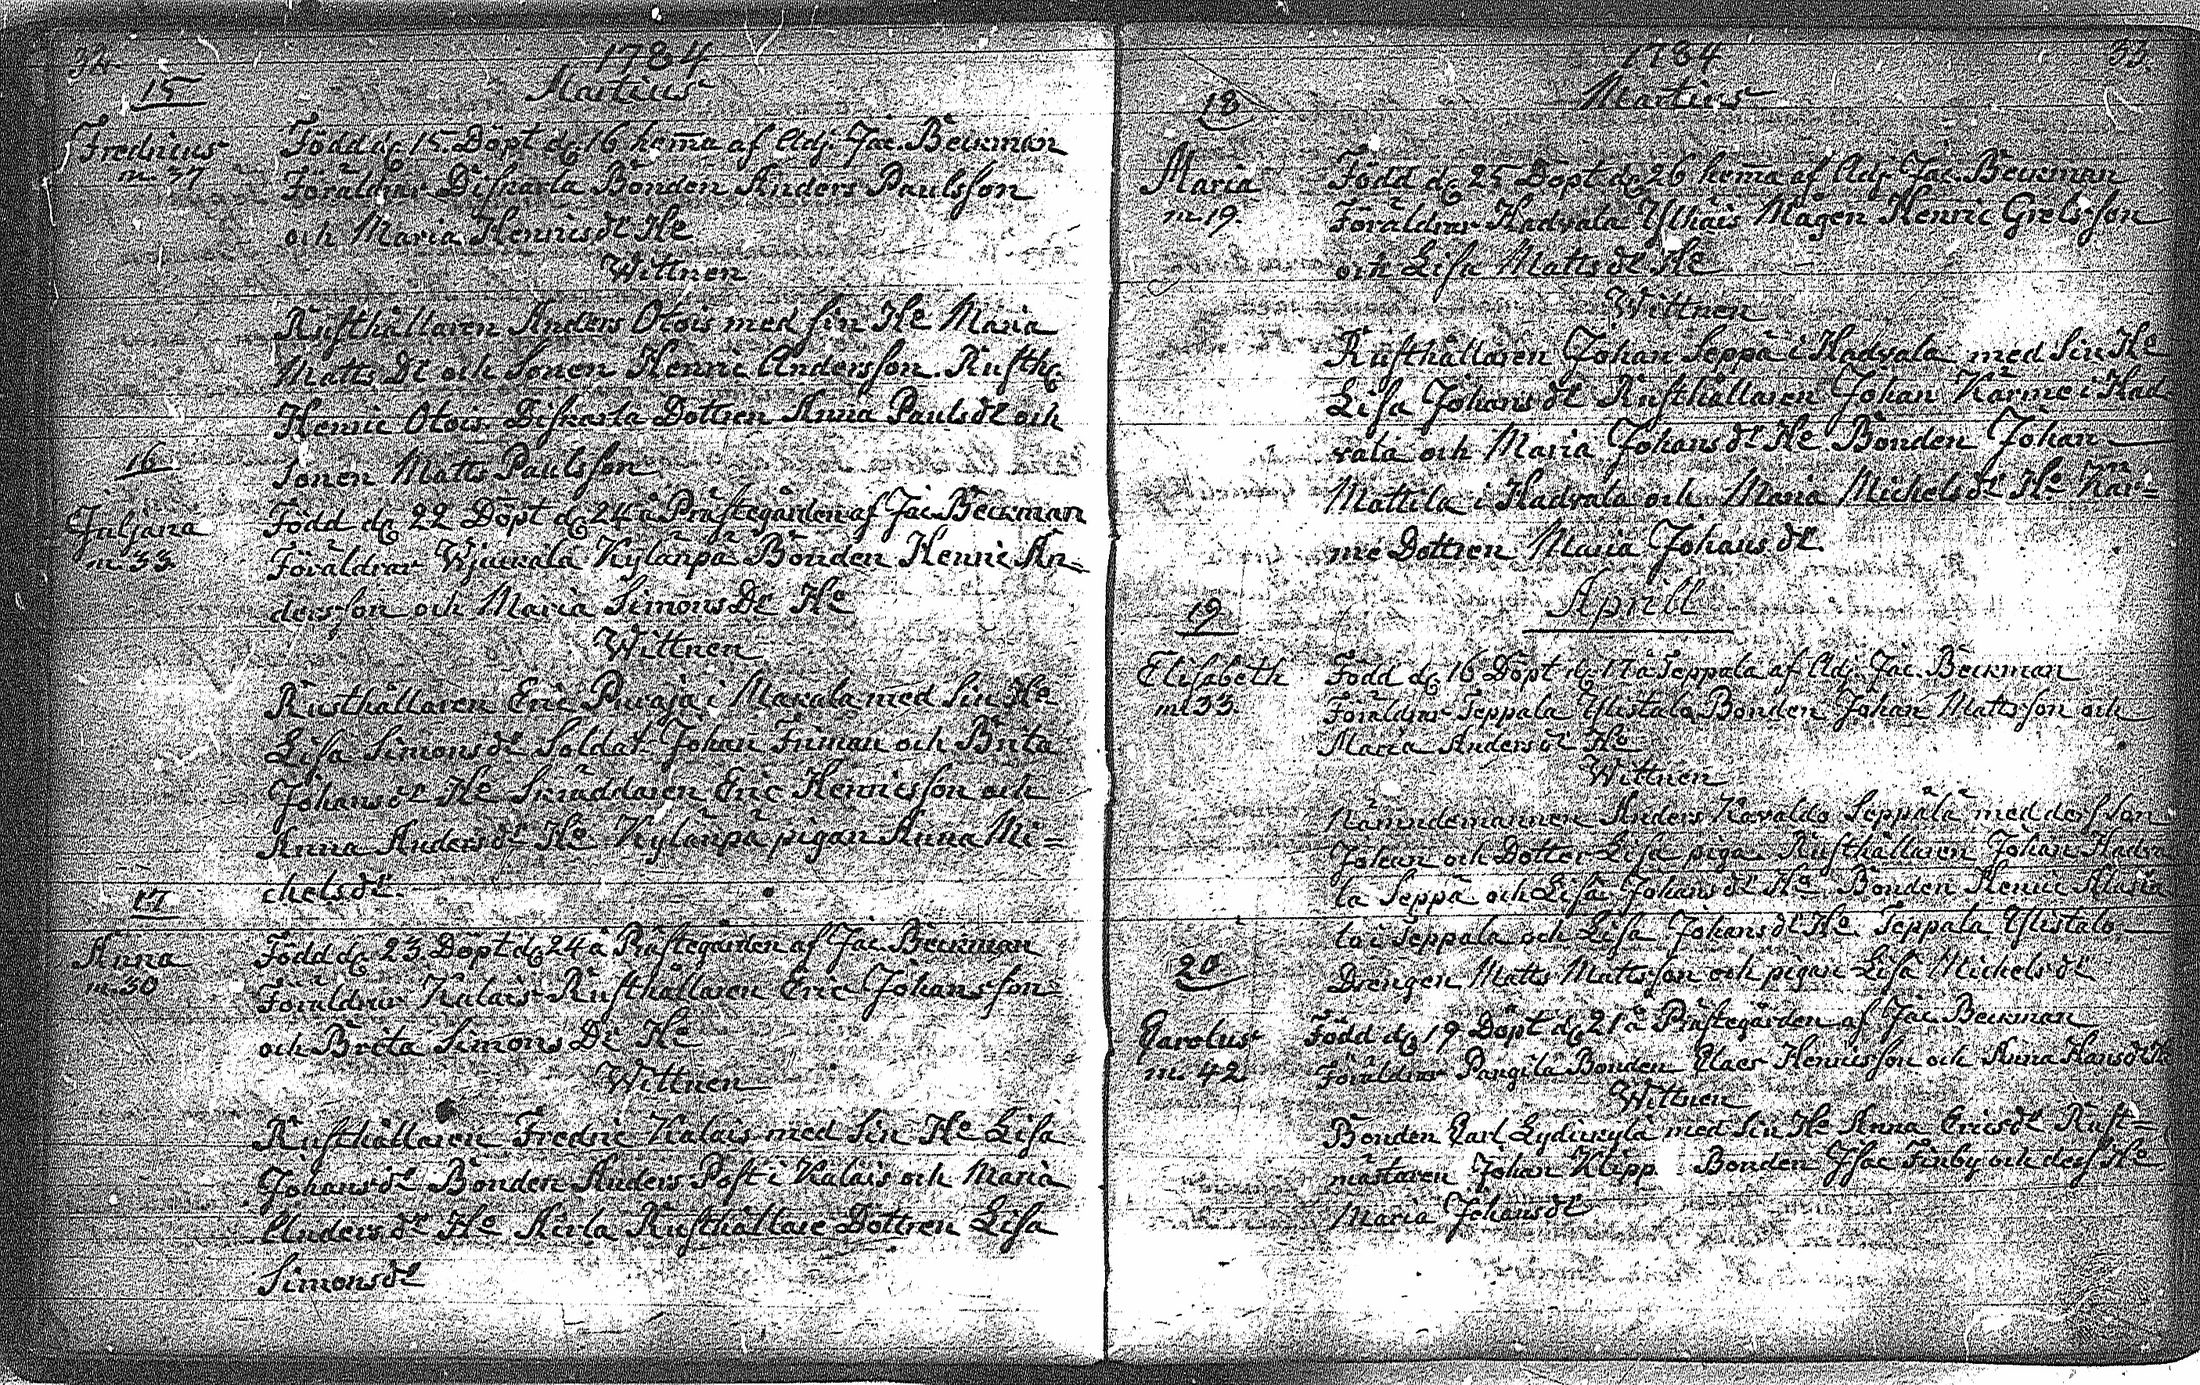 1784
Martius
15
Fredricus
m. 37
Född d. 15. Döpt d. 16 hema af Adj. Jac. Beckman
Föräldrar Diskarla Bonden Anders Paulsson
och Maria Henricsdr. Ho
Wittnen
Rusthållaren Anders Otois med sin Ho Maria
Matts Dr och Sonen Henric Andersson. Rusth.
Henric Otois. Diskarla Dottren Anna Paulsdr och
Sonen Matts Paulsson
16
Juljana
m. 33.
Född d. 22 Döpt d. 24 å Prästegården af Jac. Beckman
Föräldrar Kylänpä Bonden Henric An=
dersson och Maria Simons Dr Ho
Wittnen
Rusthållaren Eric i Makala med Sin Ho
Lisa Simonsdr Soldat Johan Friman och Brita
Johansdr Ho Skräddaren Eric Henricsson och
Anna Andersdr Ho Kylänpä pigan Anna Mi=
chelsdr.
17
Anna
m. 30
Född d. 23 Döpt d. 24 å Prästegården af Jac. Beckman
Föräldrar Kalais Rusthållaren Eric Johansson
och Brita Simons Dr Ho
Wittnen
Rusthållaren Fredric Kalais med Sin Ho Lisa
Johansdr Bonden Anders Post i Kalais och Maria
Andersdr Ho Kerla Rusthållare Dottren Lisa
Simonsdr
1784
33.
Martius
18
Maria
m. 19.
Född d. 25 Döpt d. 26 hema af Adj. Jac. Beckman
Föräldrar Hadvala Mågen Henric Grelsson
och Lisa Mattsdr Ho
Wittnen
Rusthållaren Johan Seppä i Hadvala med Sin Ho
Lisa Johansdr Rusthållaren Johan Karme i Had
vala och Maria Johansdr Ho Bonden Johan
Mattila i Hadvala och Maria Michelsdr Ho Kar=
me Dottren Maria Johansdr.
Aprill
19
Elisabeth
m. 33.
Född d. 16 Döpt d. 17 å Seppälä af Adj. Jac. Beckman
Föräldrar Seppälä Ylistalo Bonden Johan Mattsson och
Maria Andersdr Ho
Wittnen
Nämndemannen Anders Seppälä med dess Son
Johan och Dotter Lisa piga. Rusthållaren Johan Hadva
la Seppä och Lisa Johansdr Ho. Bonden Henric
to i Seppälä och Lisa Johansdr Ho Seppälä Ylistalo
Drengen Matts Mattsson och pigan Lisa Michelsdr
20
Carolus
m. 42
Född d. 19 Döpt d. 21 å Prästegården af Jac. Beckman
Föräldrar Pangila Bonden Claes Henricsson och Anna Hansdr Ho
Wittnen
Bonden Carl Lydickylä med Sin Ho Anna Ericsdr Rust=
mästaren Johan Klipp Bonden Isac Finby och dess Ho
Maria Johansdr